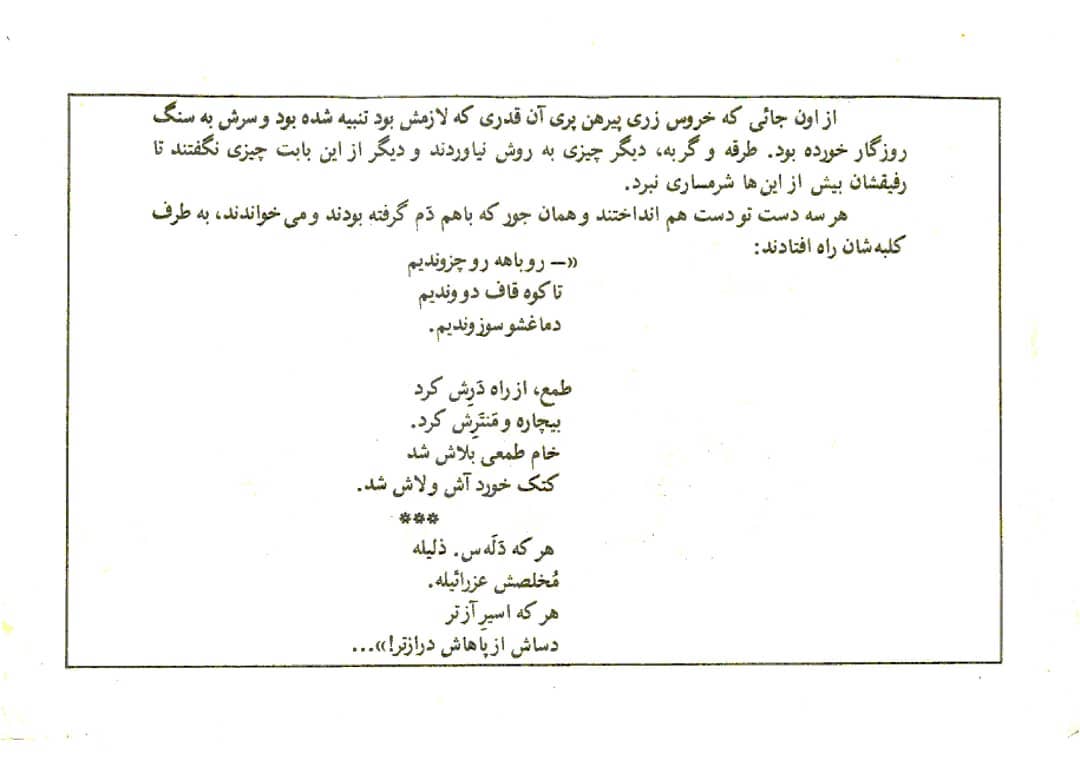 از اون جائی که خروس زری پیرهن پری آن قدری که لازمش بود تنبیه شده بود و سرش به سنگ
روزگار خورده بود. طرقه و گربه، دیگر چیزی به روش نیاوردند و دیگر از این بابت چیزی نگفتند تا
رفیقشان بیش از این‌ها شرمساری نبرد.
هر سه دست تو دست هم انداختند و همان جور که باهم دَم گرفته بودند و می خواندند، به طرف
کلبه‌شان راه افتادند:
«– روباهه رو چزوندیم
تا کوه قاف دووندیم
دماغشو سوزوندیم.
طمع، از راه دَرِش کرد
بیچاره و مَنتَرِش کرد.
خام طمعی بلاش شد
کتک خورد آش و لاش شد.
***
هر که دَلَه‌س. ذلیله
مُخلصش عزرائیله.
هر که اسیرِ آز تر
دساش از پاهاش درازتر!»...